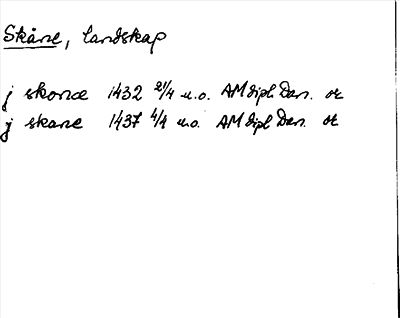 Skåne, landskap
j skonæ 1432 21/4 u.o. AM dipl Dan. or
j skane 1437 4/4 u.o. AM dipl Dan. or